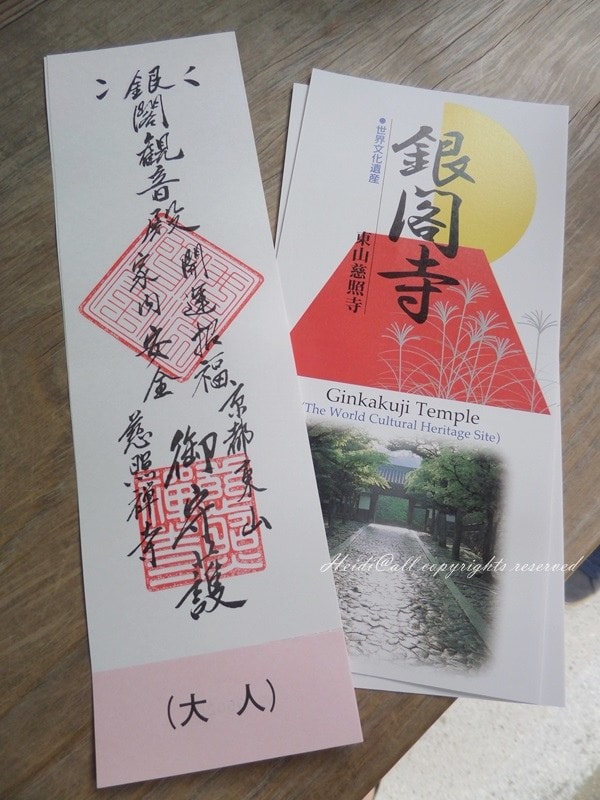 銀閣観音殿
開運招福
家内安全
御守護
京都東山
慈照禅寺
(大 人)
世界文化遺産
銀閣寺
東山慈照寺
Ginkakuji Temple
(The World Cultural Heritage Site)
Heidi@all copyrights reserved